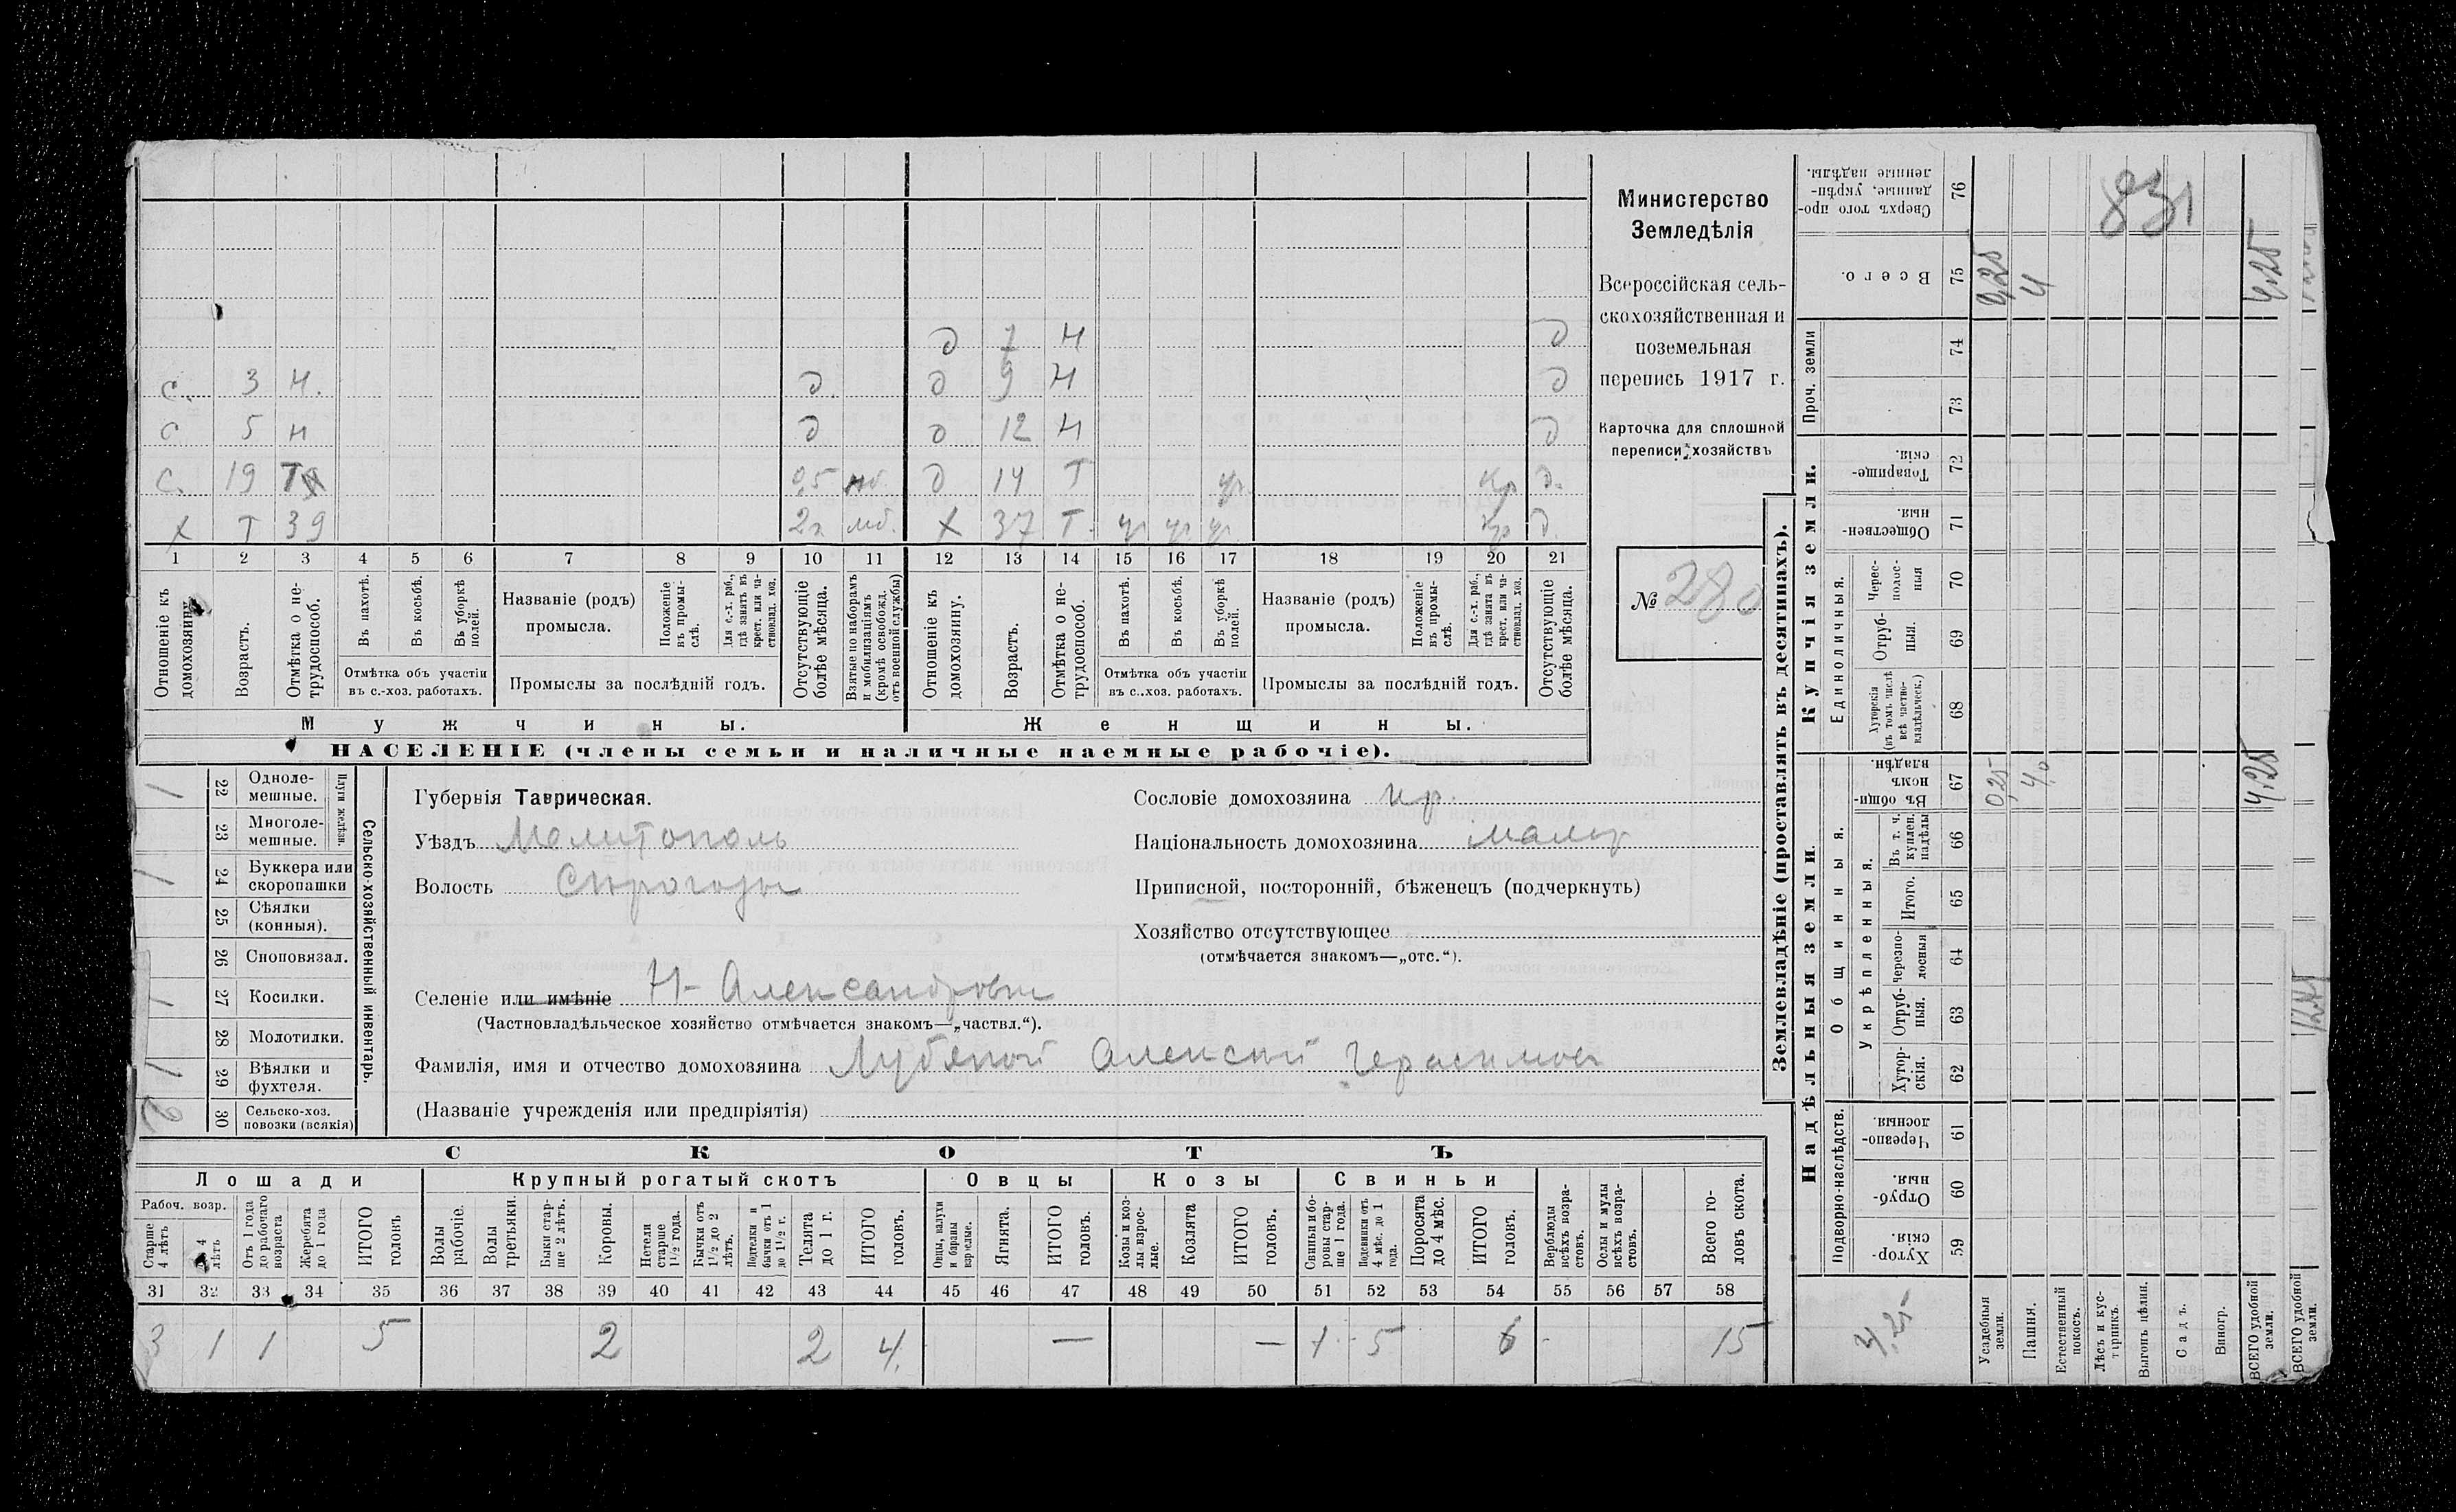 д 7 н д
с. 3 н. д. д 9 н д
с 5 н д д 12 н д
с. 19 Т 0,5 мб. д 14 Т ур. кр д.
х Т 39 2г. мб. х 37 Т. ур ур ур. кр д.
1 2 3 4 5 6 7 8 9 10 11 12 13 14 15 16 17 18 19 20 21
Отношеніе къ домохозяину.
Возрастъ.
Отмѣтка о не-трудоспособ.
Въ пахотѣ.
Въ косьбѣ.
Въ уборкѣ полей.
Отмѣтка объ участіи въ с.-хоз. работахъ.
Названіе (родъ) промысла.
Положеніе въ промы-слѣ.
Для с.-х. раб., гдѣ занятъ въ крест. или ча-стновлад. хоз.
Промыслы за послѣдній годъ.
Отсутствующіе болѣе мѣсяца.
Взятые по наборамъ и мобилизаціямъ (кромѣ освобожд. отъ военной службы)
Отношеніе къ домохозяину.
Возрастъ.
Отмѣтка о не-трудоспособ.
Въ пахотѣ.
Въ косьбѣ.
Въ уборкѣ полей.
Отмѣтка объ участіи въ с.-хоз. работахъ.
Названіе (родъ) промысла.
Положеніе въ промы-слѣ.
Для с.-х. раб., гдѣ занята въ крест. или ча-стновлад. хоз.
Промыслы за послѣдній годъ.
Отсутствующіе болѣе мѣсяца.
Мужчины. Женщины.
НАСЕЛЕНІЕ (члены семьи и наличные наемные рабочіе).
Министерство
Земледѣлія
Всероссійская сель-
скохозяйственная и
поземельная
перепись 1917 г.
Карточка для сплошной
переписи хозяйствъ
№ 280
Сельско-хозяйственный инвентарь.
Плуги желѣзн.
22 Одноле-мешные. 1
23 Многоле-мешные.
24 Буккера или скоропашки 1
25 Сѣялки (конныя).
26 Сноповязал.
27 Косилки. 1
28 Молотилки.
29 Вѣялки и фухтеля. 1
30 Сельско-хоз. повозки (всякія) 2
Губернія Таврическая.
Уѣздъ Мелитополь
Волость Сирогозы
Селеніе или имѣніе Н-Александровка
(Частновладѣльческое хозяйство отмѣчается знакомъ—„частвл.“).
Фамилія, имя и отчество домохозяина Лубяной Алексий Герасимов
(Названіе учрежденія или предпріятія)
Сословіе домохозяина кр.
Національность домохозяина малор
Приписной, посторонній, бѣженецъ (подчеркнуть)
Хозяйство отсутствующее
(отмѣчается знакомъ—„отс.“).
СКОТЪ
Лошади Крупный рогатый скотъ Овцы Козы Свиньи
Рабоч. возр.
Старше 4 лѣтъ
До 4 лѣтъ
Отъ 1 года до рабочаго возраста
Жеребята до 1 года
ИТОГО головъ
Волы рабочіе.
Волы третьяки.
Быки стар-ше 2 лѣтъ.
Коровы.
Нетели старше 1½ года.
Бычки отъ 1½ до 2 лѣтъ.
Подтелки и бычки отъ 1 до 1½ г.
Телята до 1 г.
ИТОГО головъ.
Овцы, валухи и бараны взрослые.
Ягнята.
ИТОГО головъ.
Козы и коз-лы взрос-лые.
Козлята
ИТОГО головъ.
Свиньи и бо-ровы стар-ше 1 года.
Подсвинки отъ 4 мѣс. до 1 года.
Поросята до 4 мѣс.
ИТОГО головъ.
Верблюды всѣхъ возра-стовъ.
Ослы и мулы всѣхъ возра-стовъ.
Всего го-ловъ скота.
31 32 33 34 35 36 37 38 39 40 41 42 43 44 45 46 47 48 49 50 51 52 53 54 55 56 57 58
3 1 1 5 2 2 4. — — 1 5 6 15
Землевладѣніе (проставлять въ десятинахъ).
Надѣльныя земли. Купчія земли.
Проч. земли
Подворно-наслѣдств.
Общинныя.
Укрѣпленныя.
Единоличныя.
Хутор-скія. 59
Отруб-ныя. 60
Черезпо-лосныя. 61
Хутор-скія. 62
Отруб-ныя. 63
Черезпо-лосныя 64
Итого. 65
Въ т. ч. куплен. надѣлы 66
Въ общи-номъ владѣн. 67
Хуторскія (въ томъ числѣ всѣ частно-владѣльческ.) 68
Отруб-ныя. 69
Черес-полос-ныя 70
Обществен-ныя. 71
Товарище-скія. 72
73
74
Всего. 75
Сверхъ того про-данные, укрѣп-ленные надѣлы. 76
Усадебныя земли. 0,25 0,25
Пашня. 4,0 4
Естественный покосъ.
Лѣсъ и кус-тарникъ.
Выгонъ цѣлин.
Садъ.
Виногр.
ВСЕГО удобной земли. 4,25 4,25
ВСЕГО удобной земли.
4,25
831